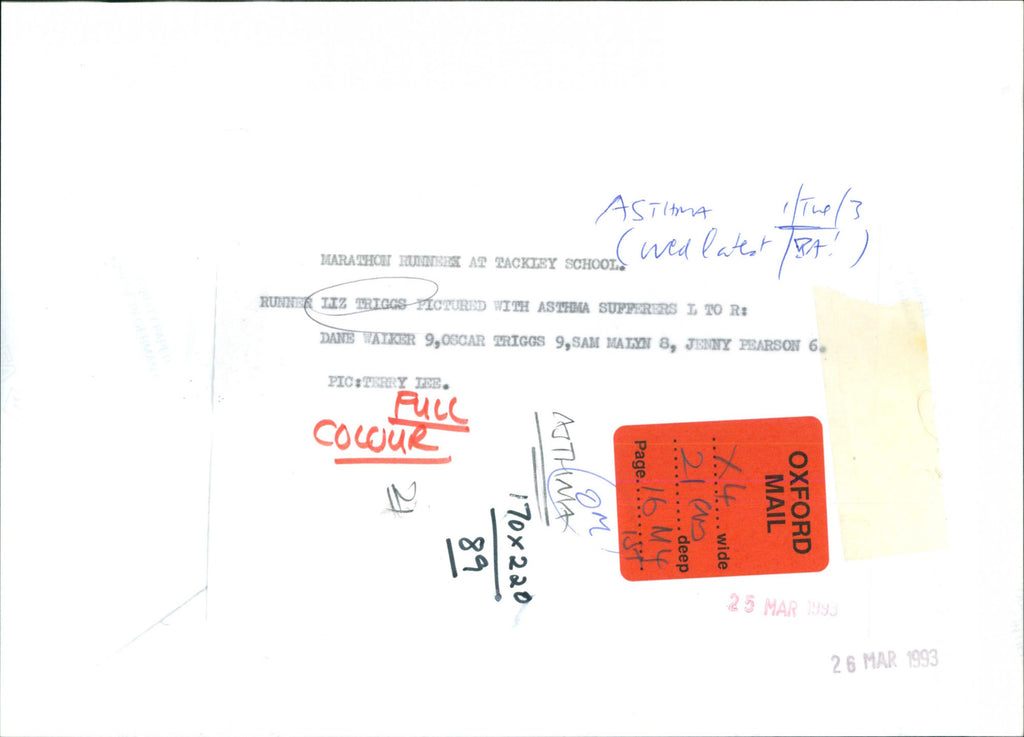 ASTHMA 1/Tue/3
(wed latest /BA!)
MARATHON RUNNERX AT TACKLEY SCHOOL.
RUNNER LIZ TRIGGS PICTURED WITH ASTHMA SUFFERERS L TO R:
DANE WALKER 9,OSCAR TRIGGS 9,SAM MALYN 8, JENNY PEARSON 6.
PIC:TERRY LEE.
FULL
COLOUR
21
ASTHMA
OM
170 x 220
89
OXFORD
MAIL
X4 wide
21 cms deep
Page 16 M4
1st
25 MAR 1993
26 MAR 1993